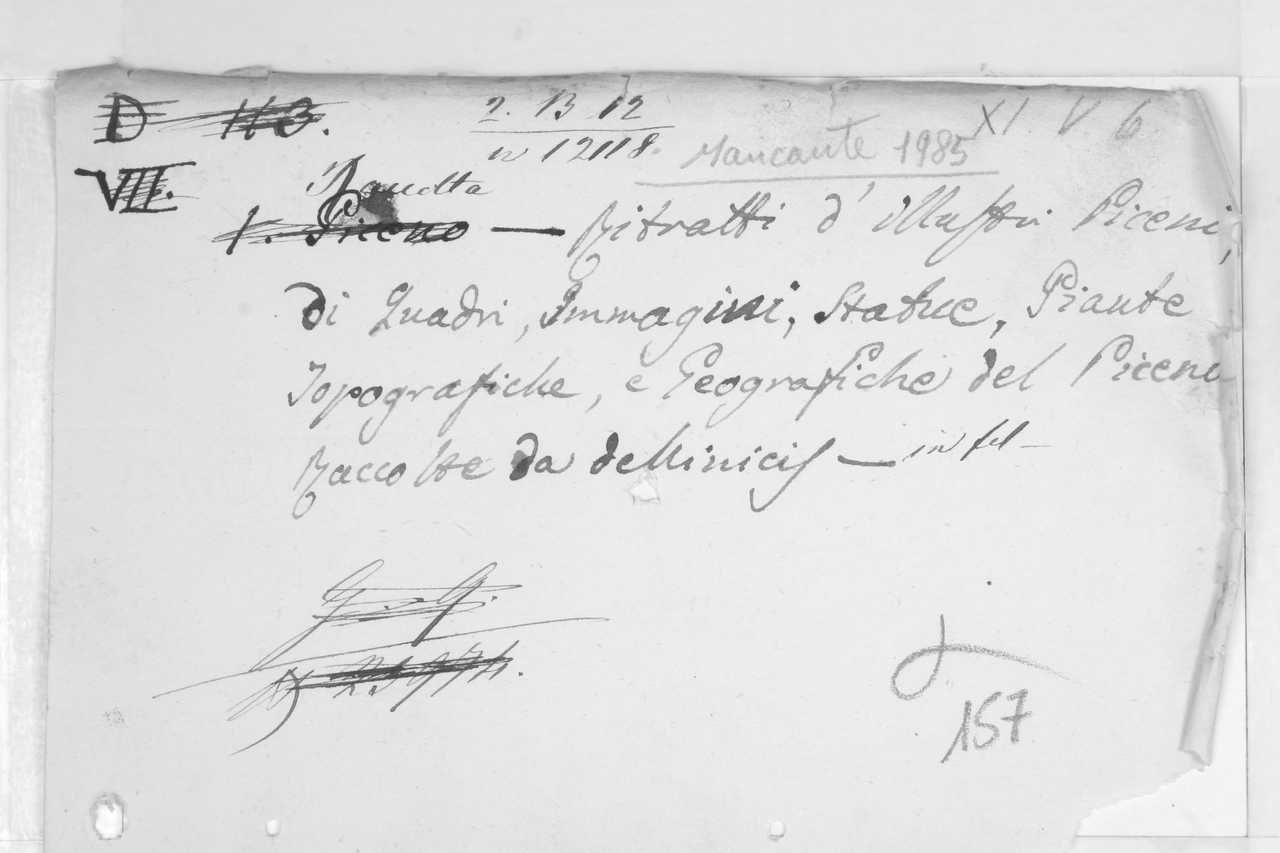 D 113.
2. B 12
n 12118.
Mancante 1985
XI V 6
VII.
Raccolta
V. Piceno — Ritratti d'illustri Piceni,
di Quadri, Immagini, Statue, Piante
Topografiche, e Geografiche del Piceno
Raccolte da deMinicis — in fol —
157